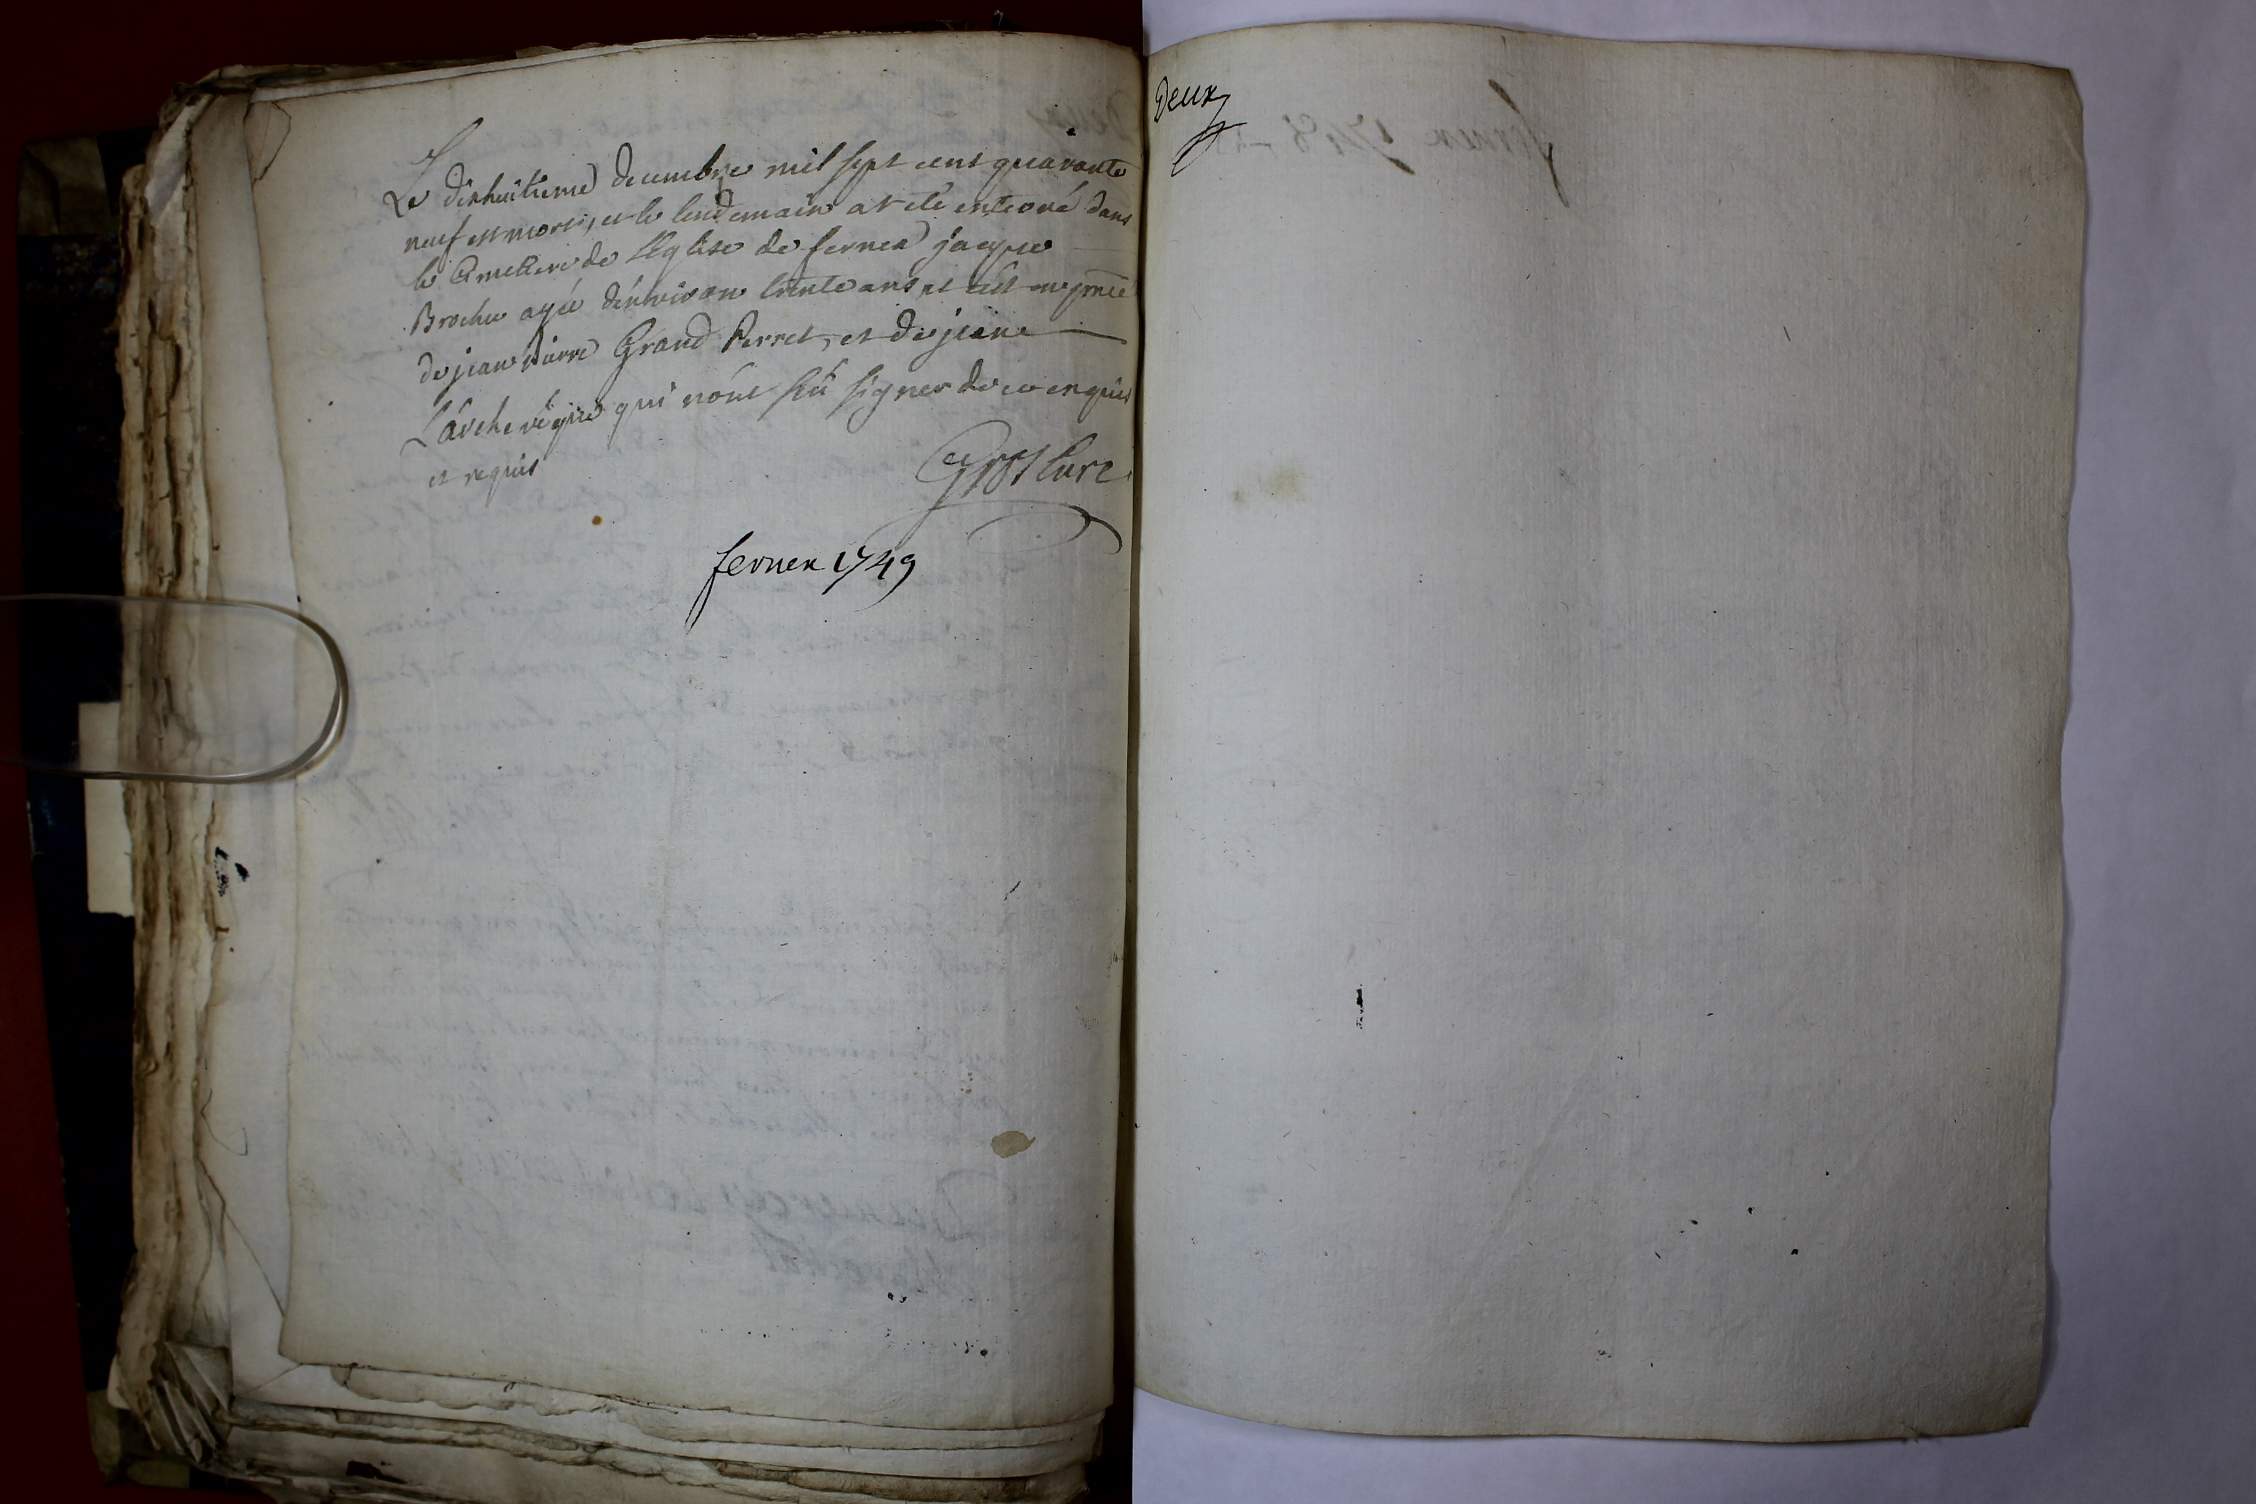 Le dixhuitieme decembre mil sept cent quarante
neuf est mort, et le lendemain at eté enterré dans
le Cimetiere de L'Eglise de fernex jacque
Brochu agée d'environ trente ans, et cest en presence
de jean pierre Grand Perret, et de jean
L'archevêque qui n'ont sçû signer de ce enquis
et requis
Gros Curé
fernex 1749
Deux